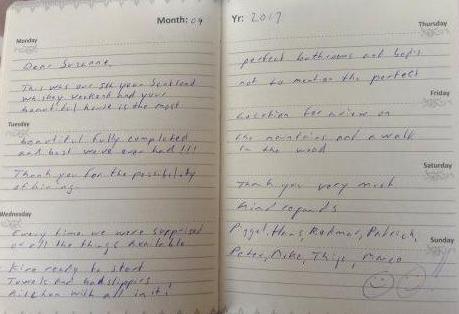 Month: 09
Monday
Dear Suzanne,
This was our 5th year Scotland
whiskey weekend and your
beautiful house is the most
Tuesday
beautiful fully completed
and best we've ever had !!!
Thank you for the possibility
of hiring
Wednesday
Every time we were supprised
of all the things available
Fire ready to start
Towels and badslippies
Kitchen with all in it!
Yr: 2017
Thursday
perfect bathrooms and beds
not to mention the perfect
Friday
location for a view on
the mountains and a walk
in the wood
Saturday
Thank you very much
Kind regards
Hans, Patrick,
Sunday
Peter, Mike, Thijs, Marco